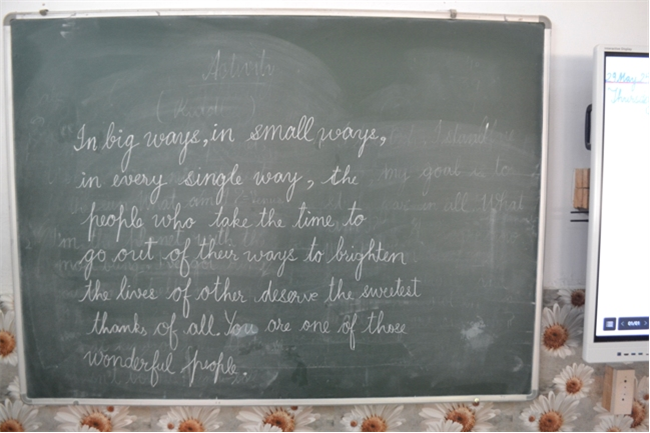 In big ways, in small ways,
in every single way, the
people who take the time to
go out of their ways to brighten
the lives of other deserve the sweetest
thanks of all. You are one of those
wonderful people.
my goal is to
29 May